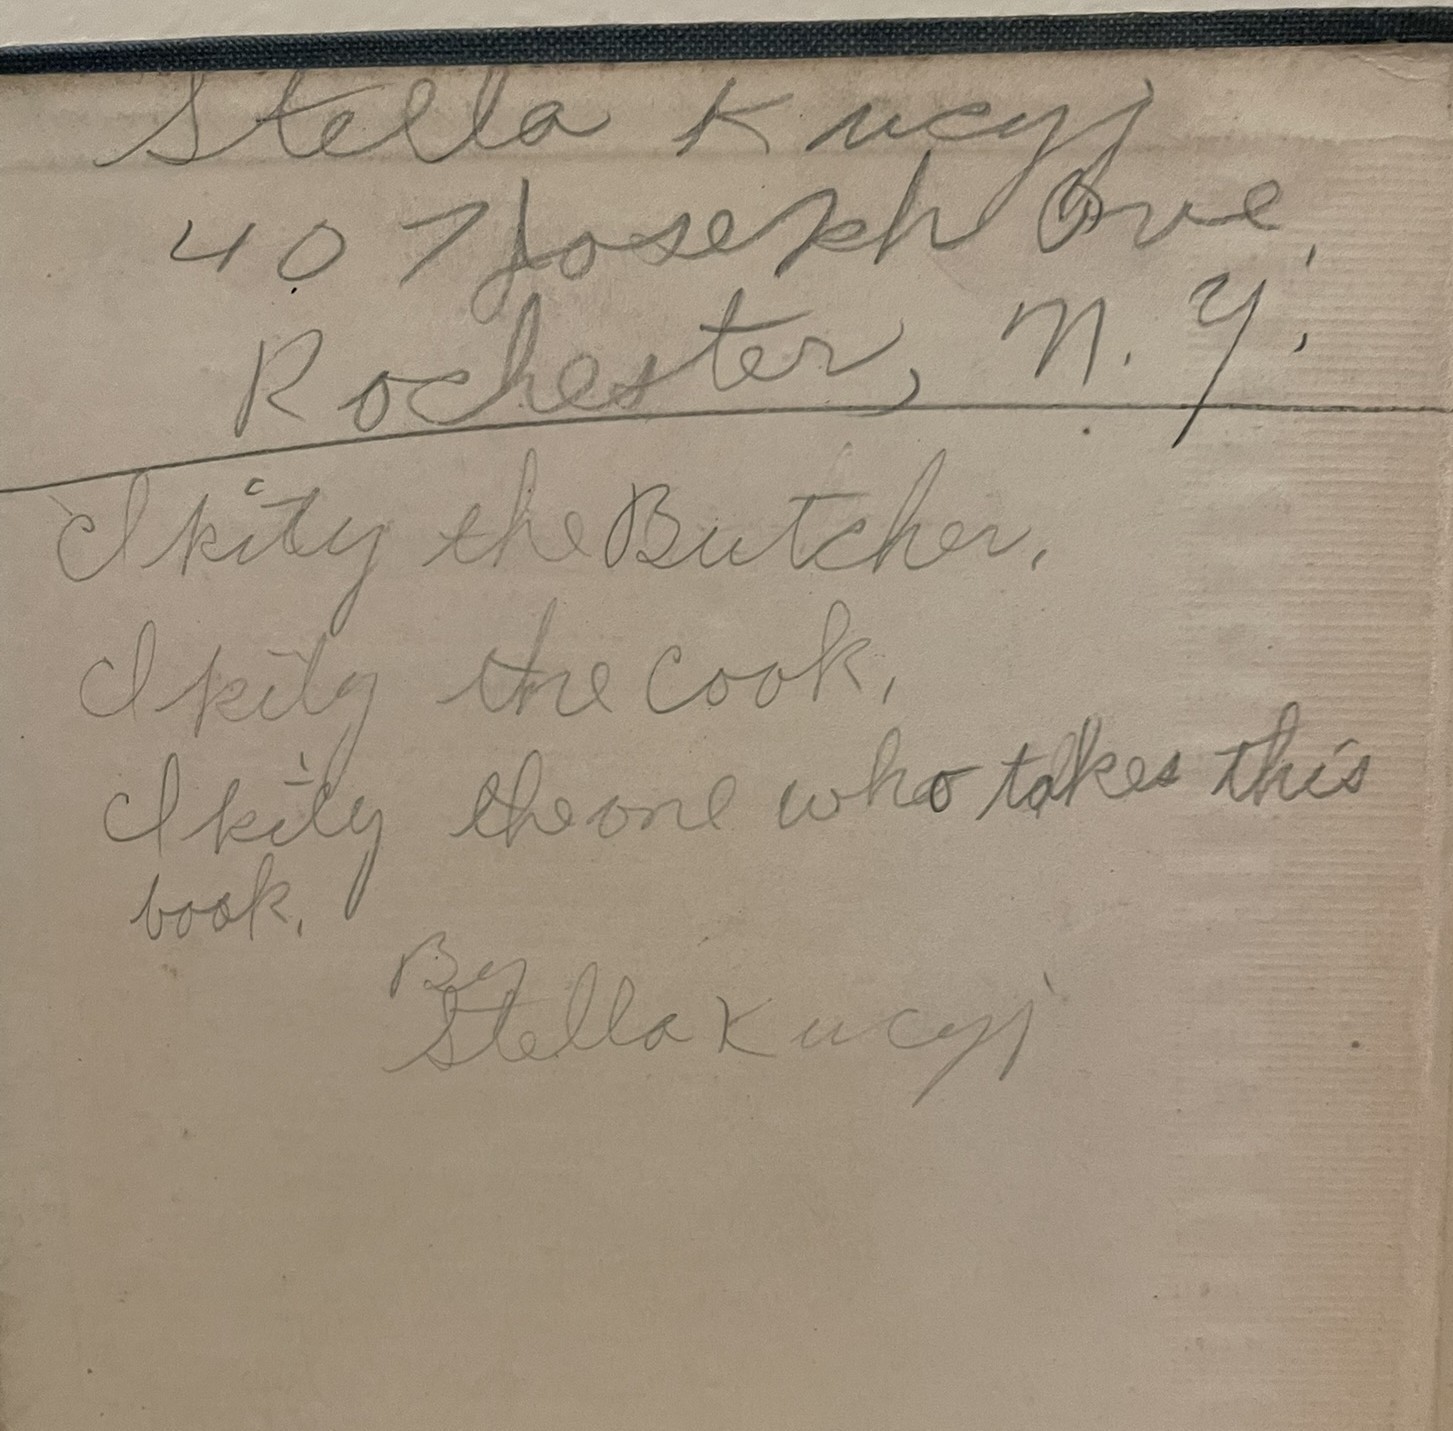 Stella Kucyj
407 Joseph Ave,
Rochester, N.Y.
I kity the Butcher,
I kity the cook,
I kity the one who takes this
book.
By
Stella Kucyj